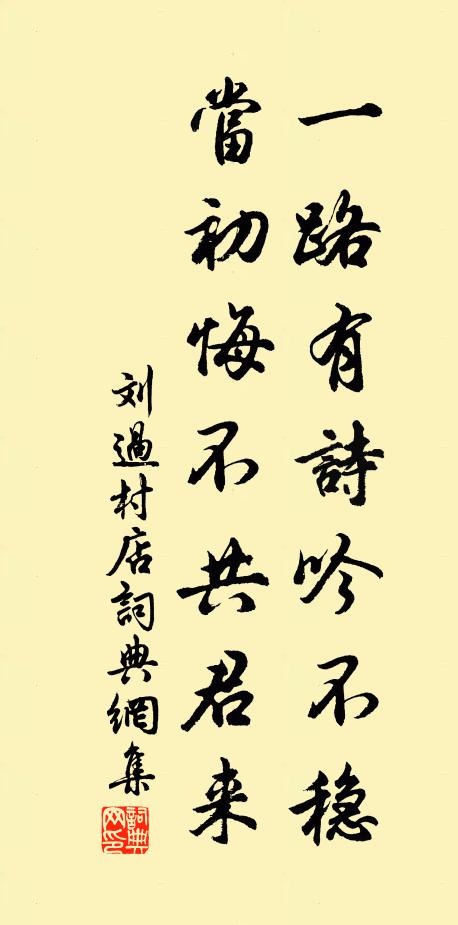 一路有詩吟不穏
當初悔不共君来
刘過村店詞典網集
詞典網印